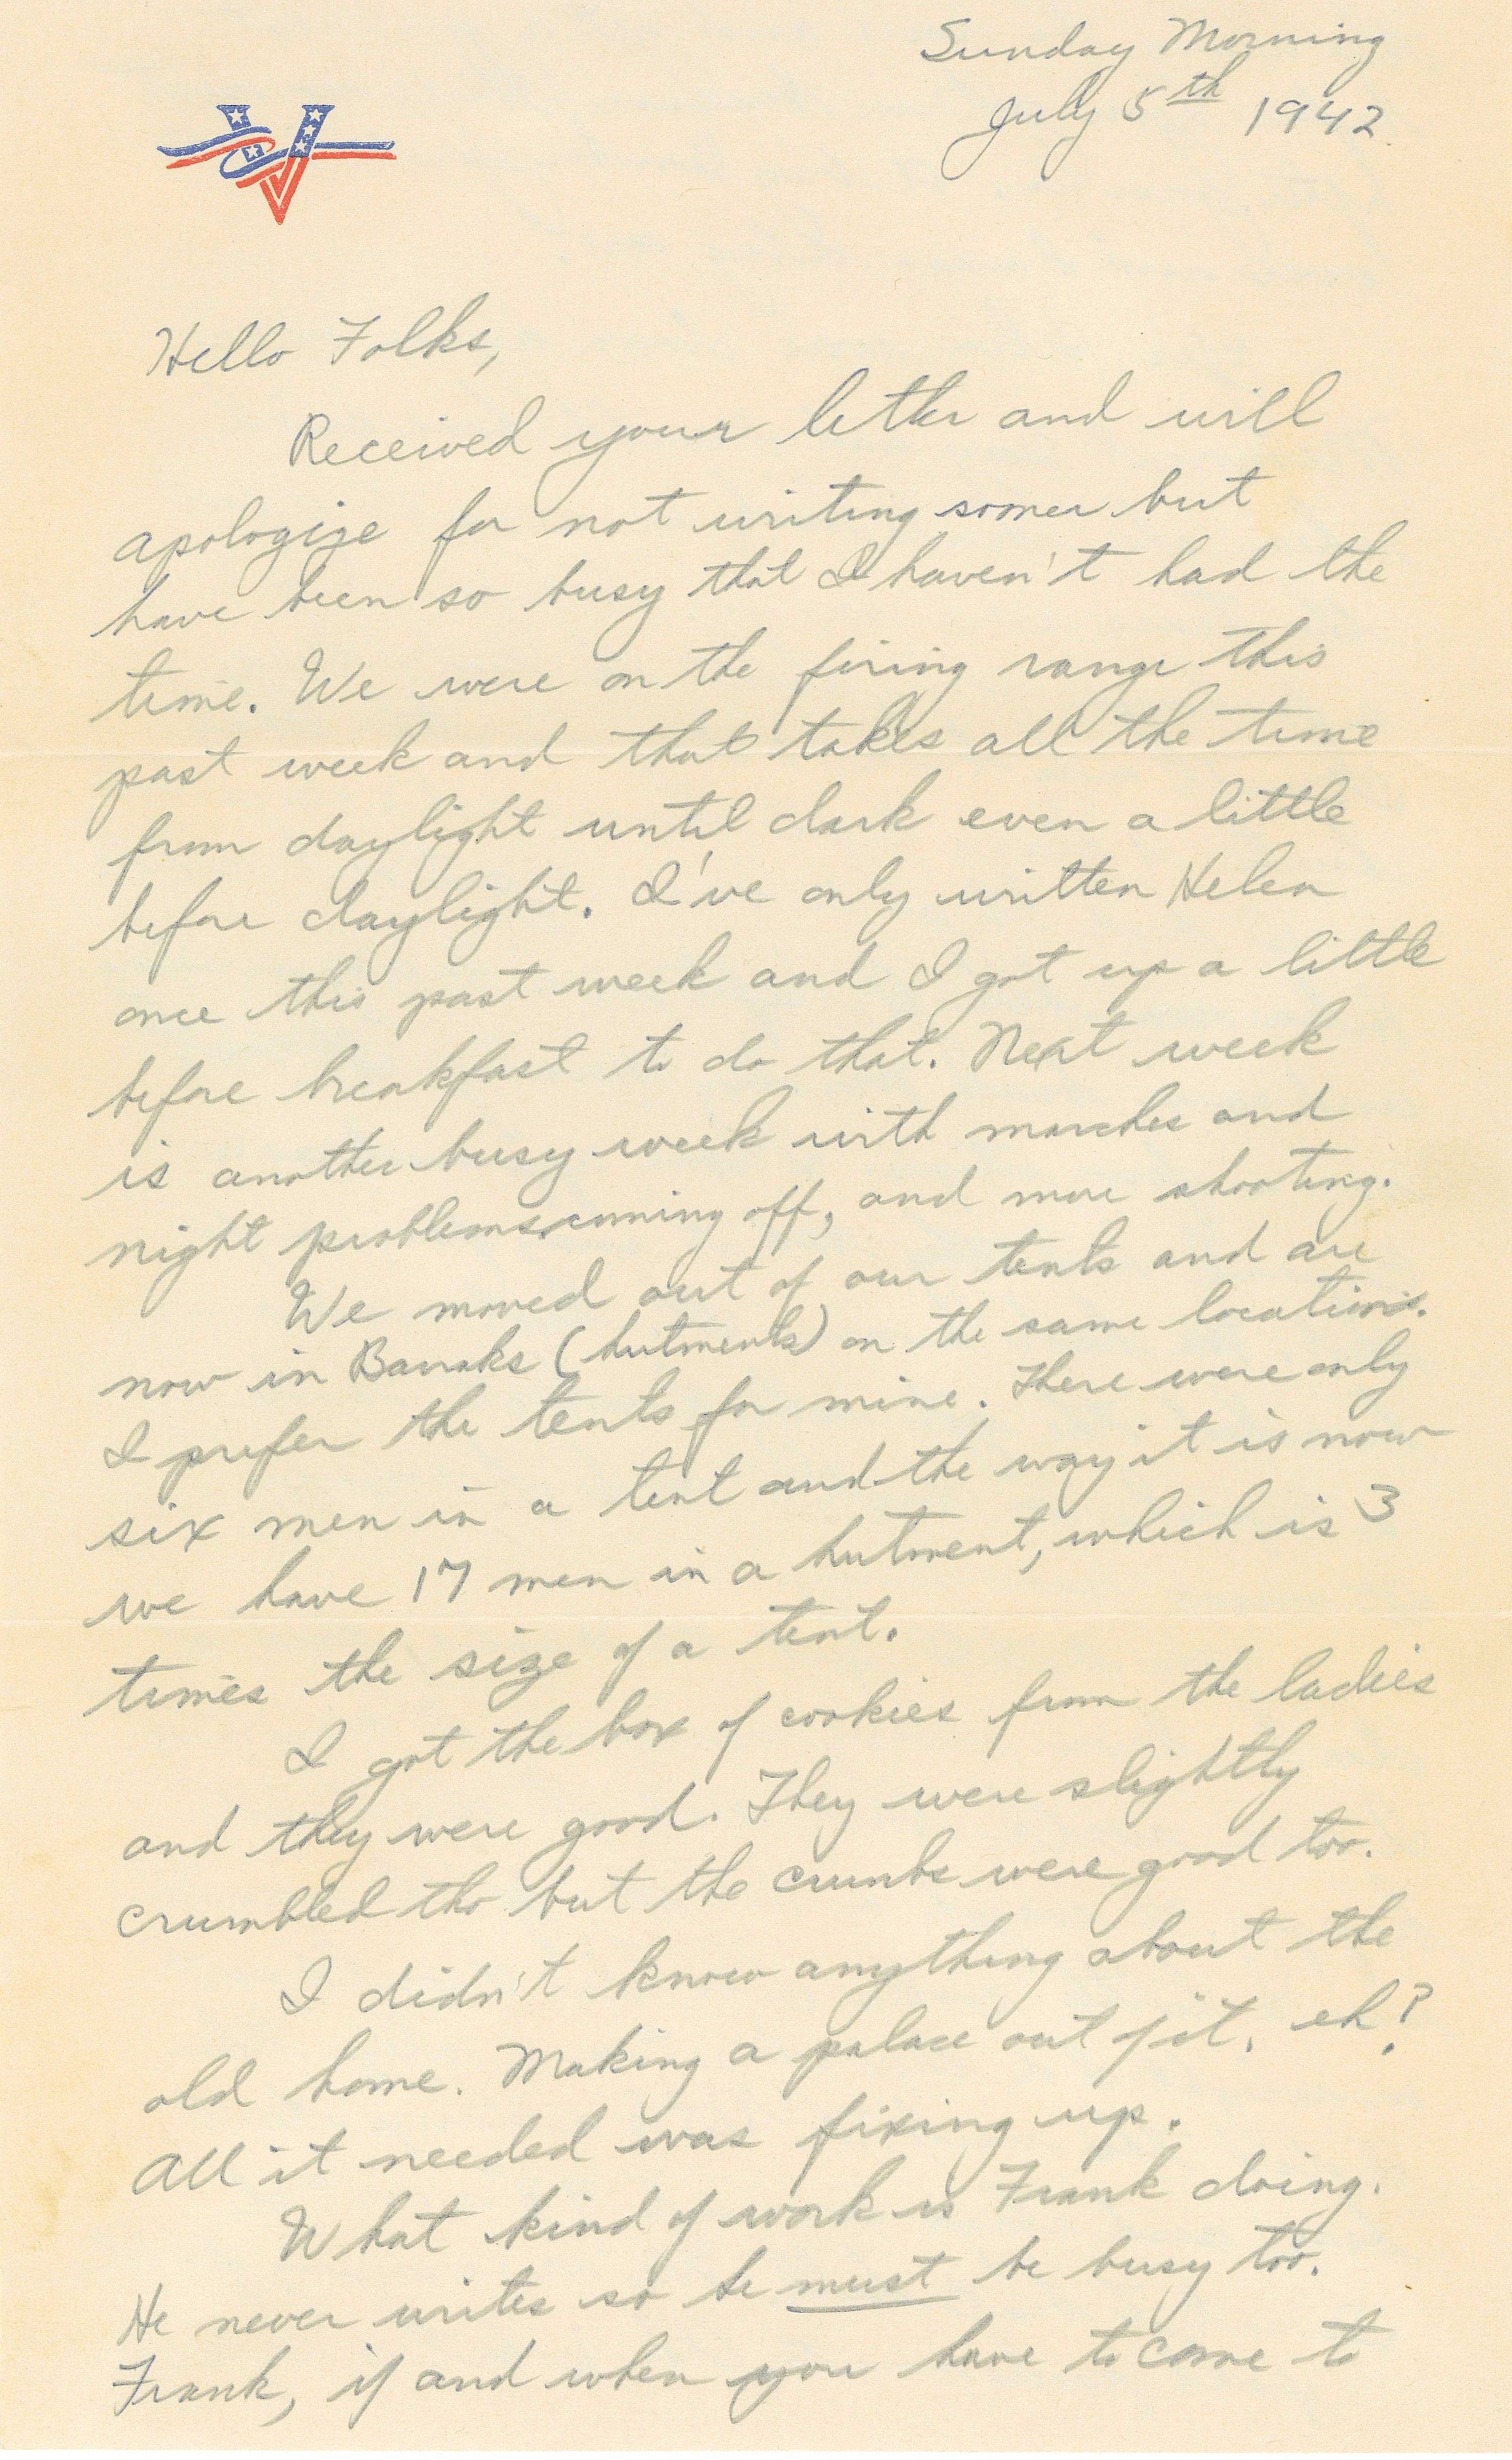 Sunday Morning
July 5th 1942.
Hello Folks,
Received your letter and will
apologize for not writing sooner but
have been so busy that I haven't had the
time. We were on the firing range this
past week and that takes all the time
from daylight until dark even a little
before daylight. I've only written Helen
once this past week and I got up a little
before breakfast to do that. Next week
is another busy week with marches and
night problems coming off, and more shooting.
We moved out of our tents and are
now in Barraks (hutments) on the same location.
I prefer the tents for mine. There were only
six men in a tent and the way it is now
we have 17 men in a hutment, which is 3
times the size of a tent.
I got the box of cookies from the ladies
and they were good. They were slightly
crumbled tho but the crumbs were good too.
I didn't know anything about the
old home. Making a palace out of it, eh?
All it needed was fixing up.
What kind of work is Frank doing.
He never writes so he must be busy too.
Frank, if and when you have to come to